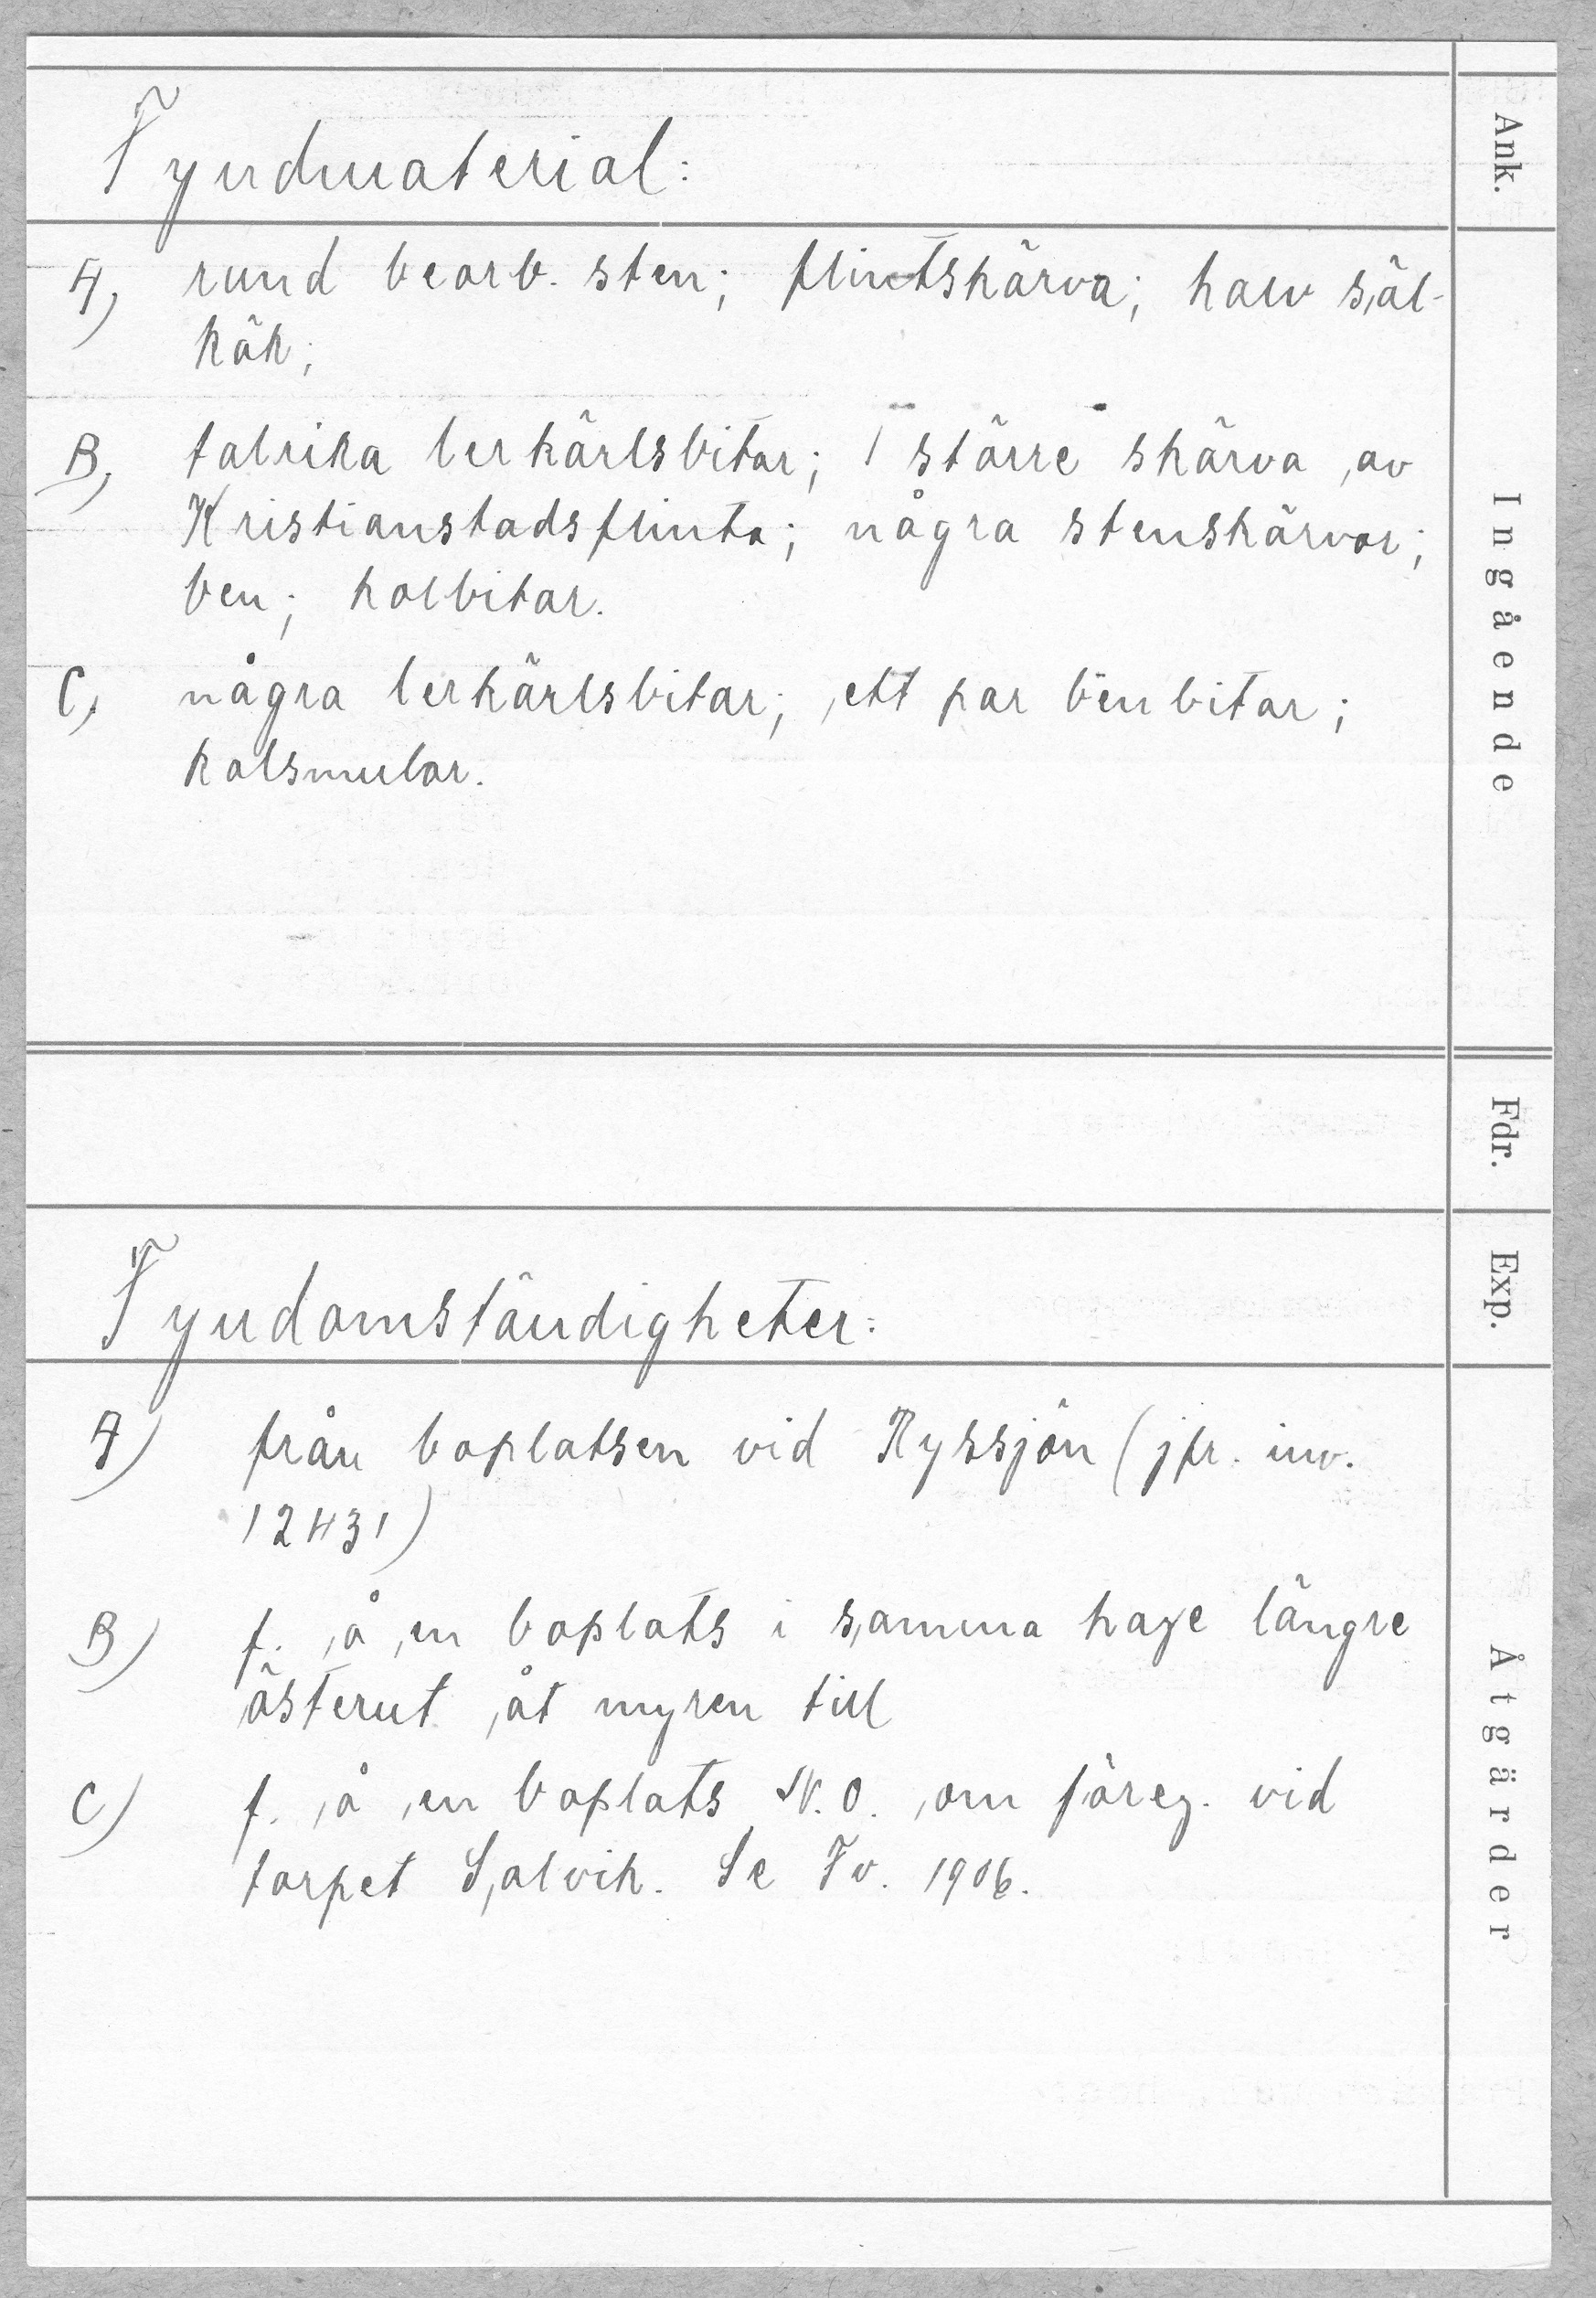 Ank.
Fyndmaterial:
Ingående
A) rund bearb. sten; flintskärva; halv säl-
käk;
B) talrika lerkärlsbitar; 1 större skärva av
Kristianstadsflinta; några stenskärvor;
ben; kolbitar.
C) några lerkärlsbitar; ett par benbitar;
kolsmular.
Fdr.
Exp.
Fyndomständigheter:
Åtgärder
A) från boplatsen vid Ryssjön (jfr. inv.
12431)
B) f. å en boplats i samma hage längre
österut åt myren till
C) f. å en boplats N.O. om föreg. vid
torpet Salvik. Se Fv. 1906.